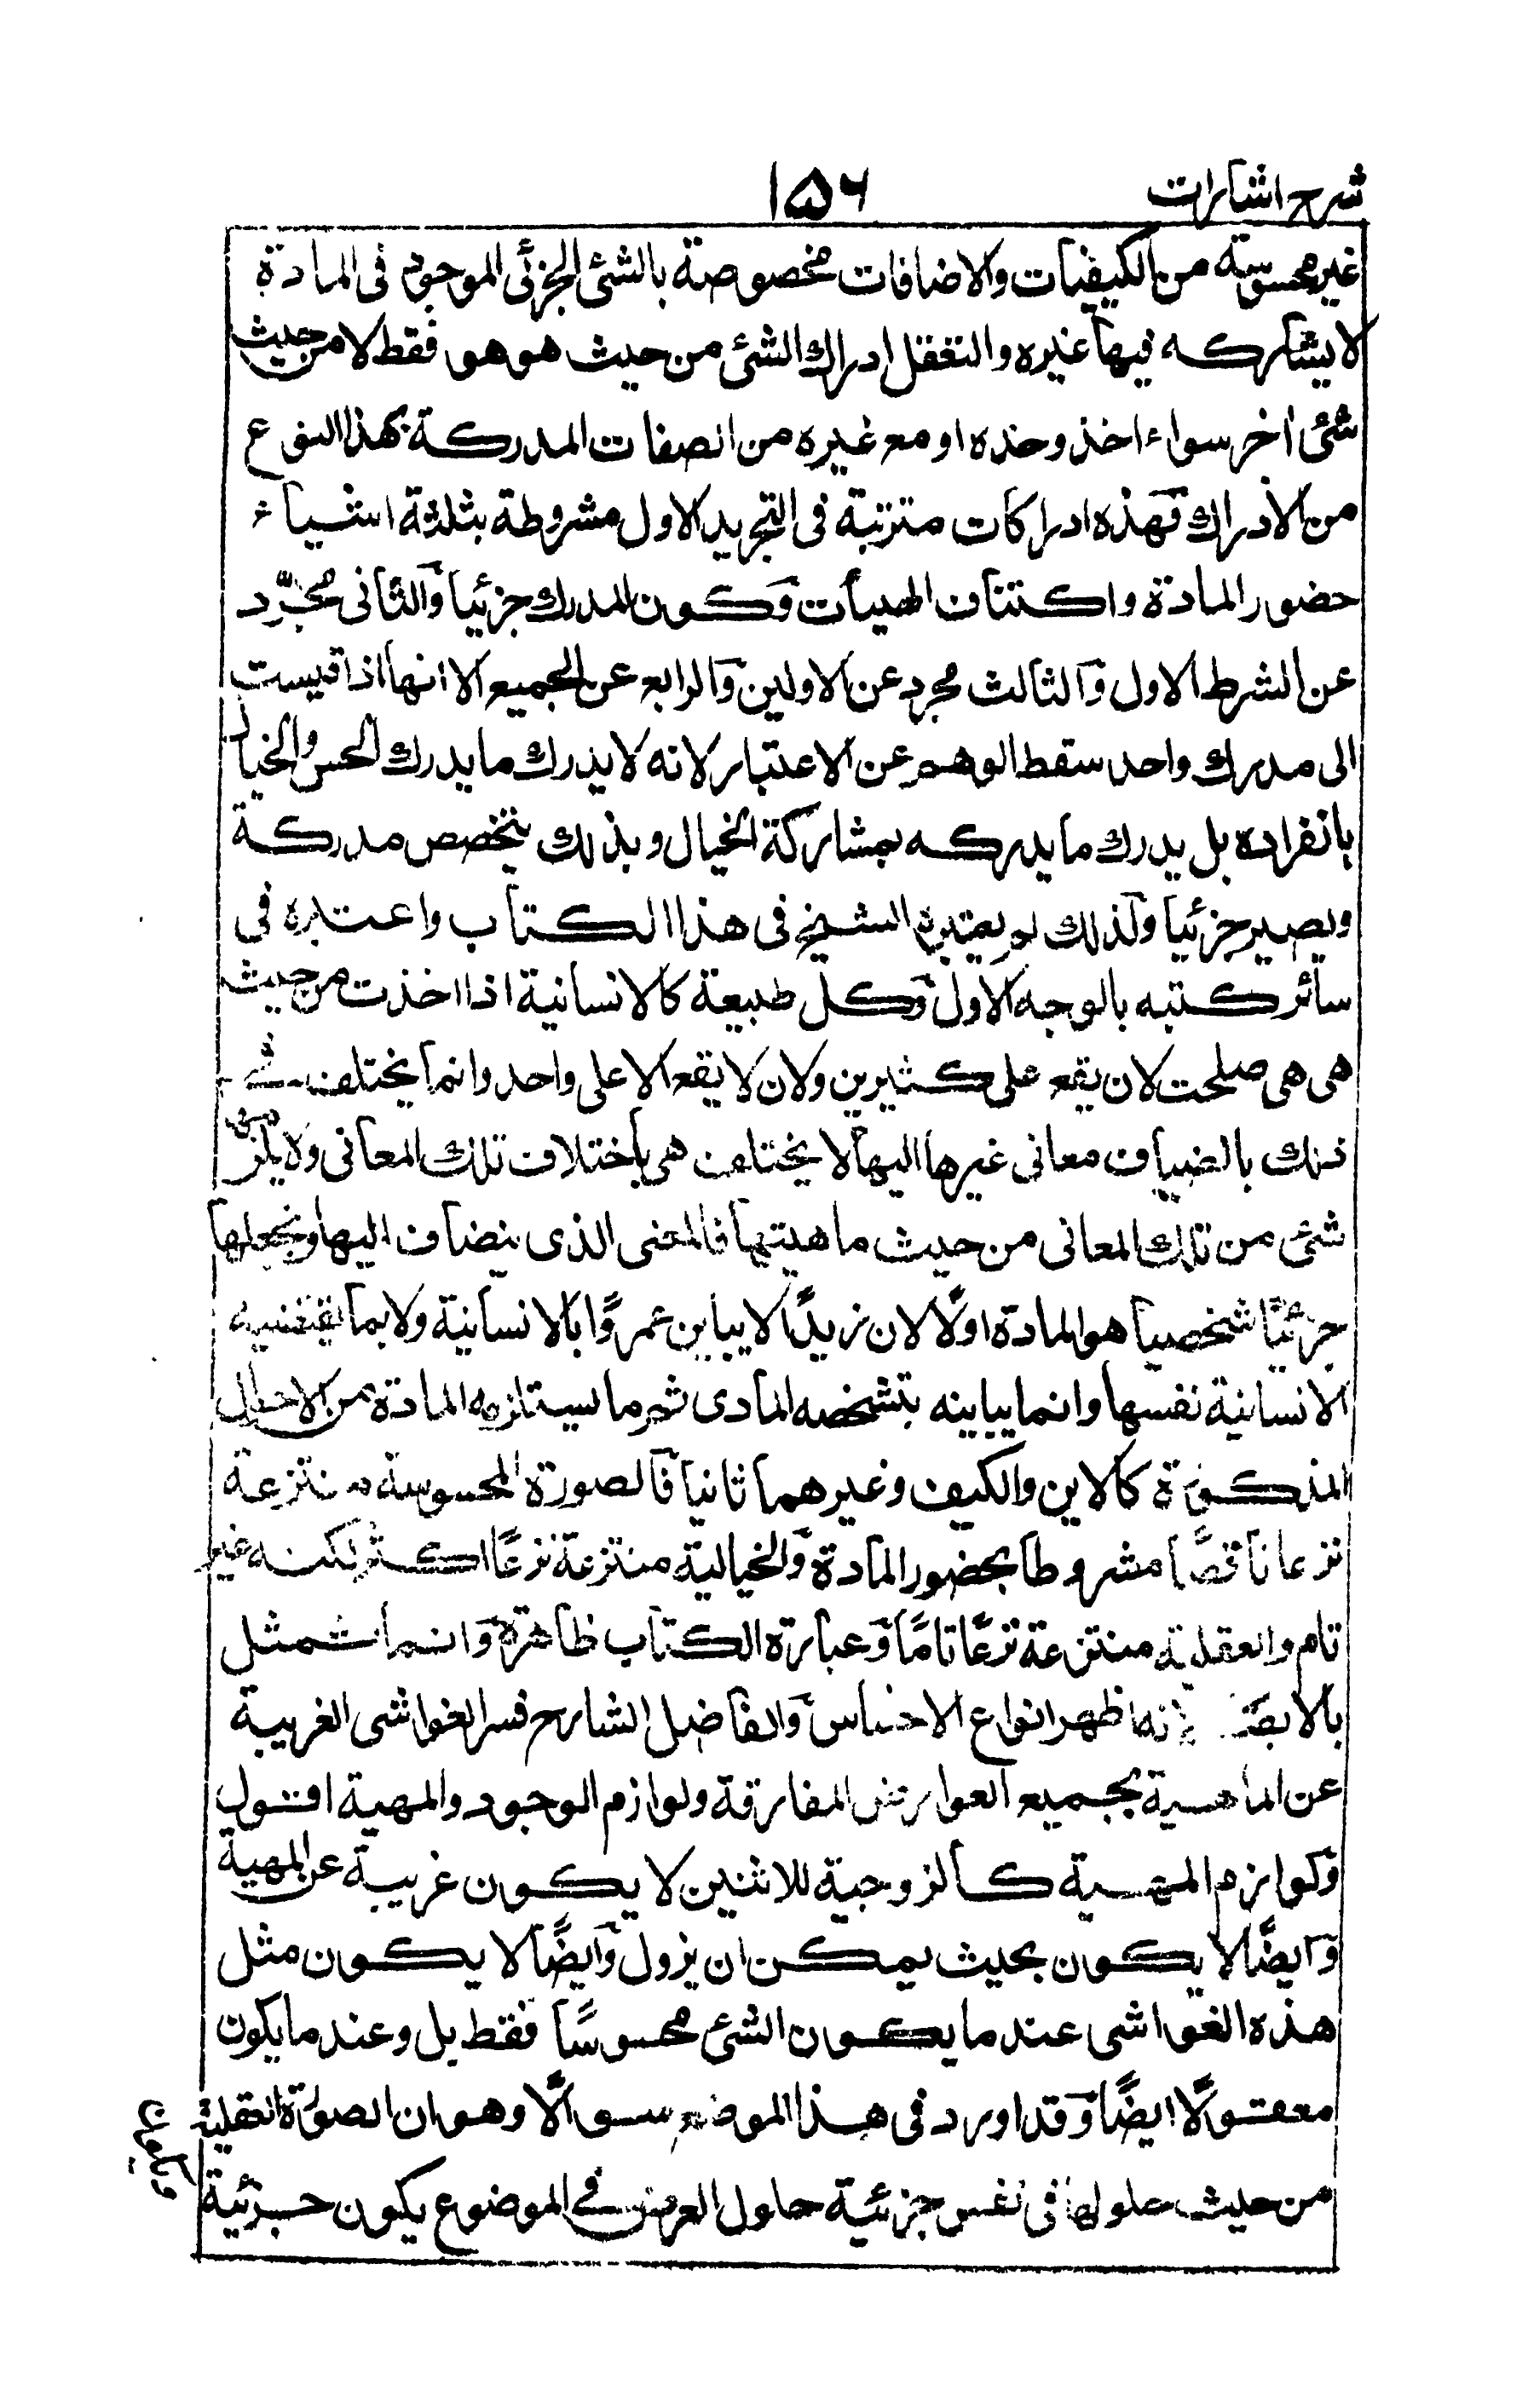 شرح اشارات
۱۵۶
غير محسوسة من الكيفيات والاضافات مخصوصة بالشئ الجزئى الموجود فى المادة
لا يشاركه فيها غيره والتعقل ادراك الشئ من حيث هو هو فقط لا من حيث
شئ اخر سواء اخذ وحده او مع غيره من الصفات المدركة بهذا النوع
من الادراك فهذه ادراكات مترتبة فى التجريد الاول مشروطة بثلثة اشياء
حضور المادة واكتناف الهيأت وكون المدرك جزئيا والثانى مجرّد
عن الشرط الاول والثالث مجرد عن الاولين والرابع عن الجميع الا انها اذا قيست
الى مدرك واحد سقط الوهم عن الاعتبار لانه لا يدرك ما يدرك الحس والخيال
بانفراده بل يدرك ما يدركه بمشاركة الخيال وبذلك يتخصص مدركة
ويصير جزئيا ولذلك لم يعتبره الشيخ فى هذا الكتاب واعتبره فى
سائر كتبه بالوجه الاول وكل طبيعة كالانسانية اذا اخذت من حيث
هى هى صلحت لان يقع على كثيرين ولان لا يقع الا على واحد وانما يختلف فى
ذلك بالضياف معانى غيرها اليها لا يختلف هى باختلاف تلك المعانى ولا يلزمها
شئ من تلك المعانى من حيث ماهيتها فالمعنى الذى ينضاف اليها ويجعلها
جزئيًا شخصيا هو المادة اولًا لان زيدًا لا يباين عمروًا بالانسانية ولا بما يقتضيه
الانسانية نفسها وانما يباينه بتشخصه المادى ثم ما يستلزمه المادة من الاحوال
المذكورة كالاين والكيف وغيرهما ثانيا فالصورة المحسوسة منتزعة
نزعا ناقصًا مشروطا بحضور المادة والخيالية منتزعة نزعًا اكثر لكنه غير
تام والعقلية منتزعة نزعًا تامًا وعبارة الكتاب ظاهرة وانما تمثل
بالابصار لانه اظهر انواع الاحساس والفاضل الشارح فسر الغواشى الغريبة
عن الماهية بجميع العوارض المفارقة ولوازم الوجود والمهية اقول
ولوازم المهية كالزوجية للاثنين لا يكون غريبة عن المهية
وايضًا لا يكون بحيث يمكن ان يزول وايضًا لا يكون مثل
هذه الغواشى عند ما يكون الشئ محسوسًا فقط بل وعند ما يكون
معقولًا ايضًا وقد اورد فى هذا الموضع سوالًا وهو ان الصورة العقلية
من حيث حلولها فى نفس جزئية حلول العرض فى الموضوع يكون جزئية